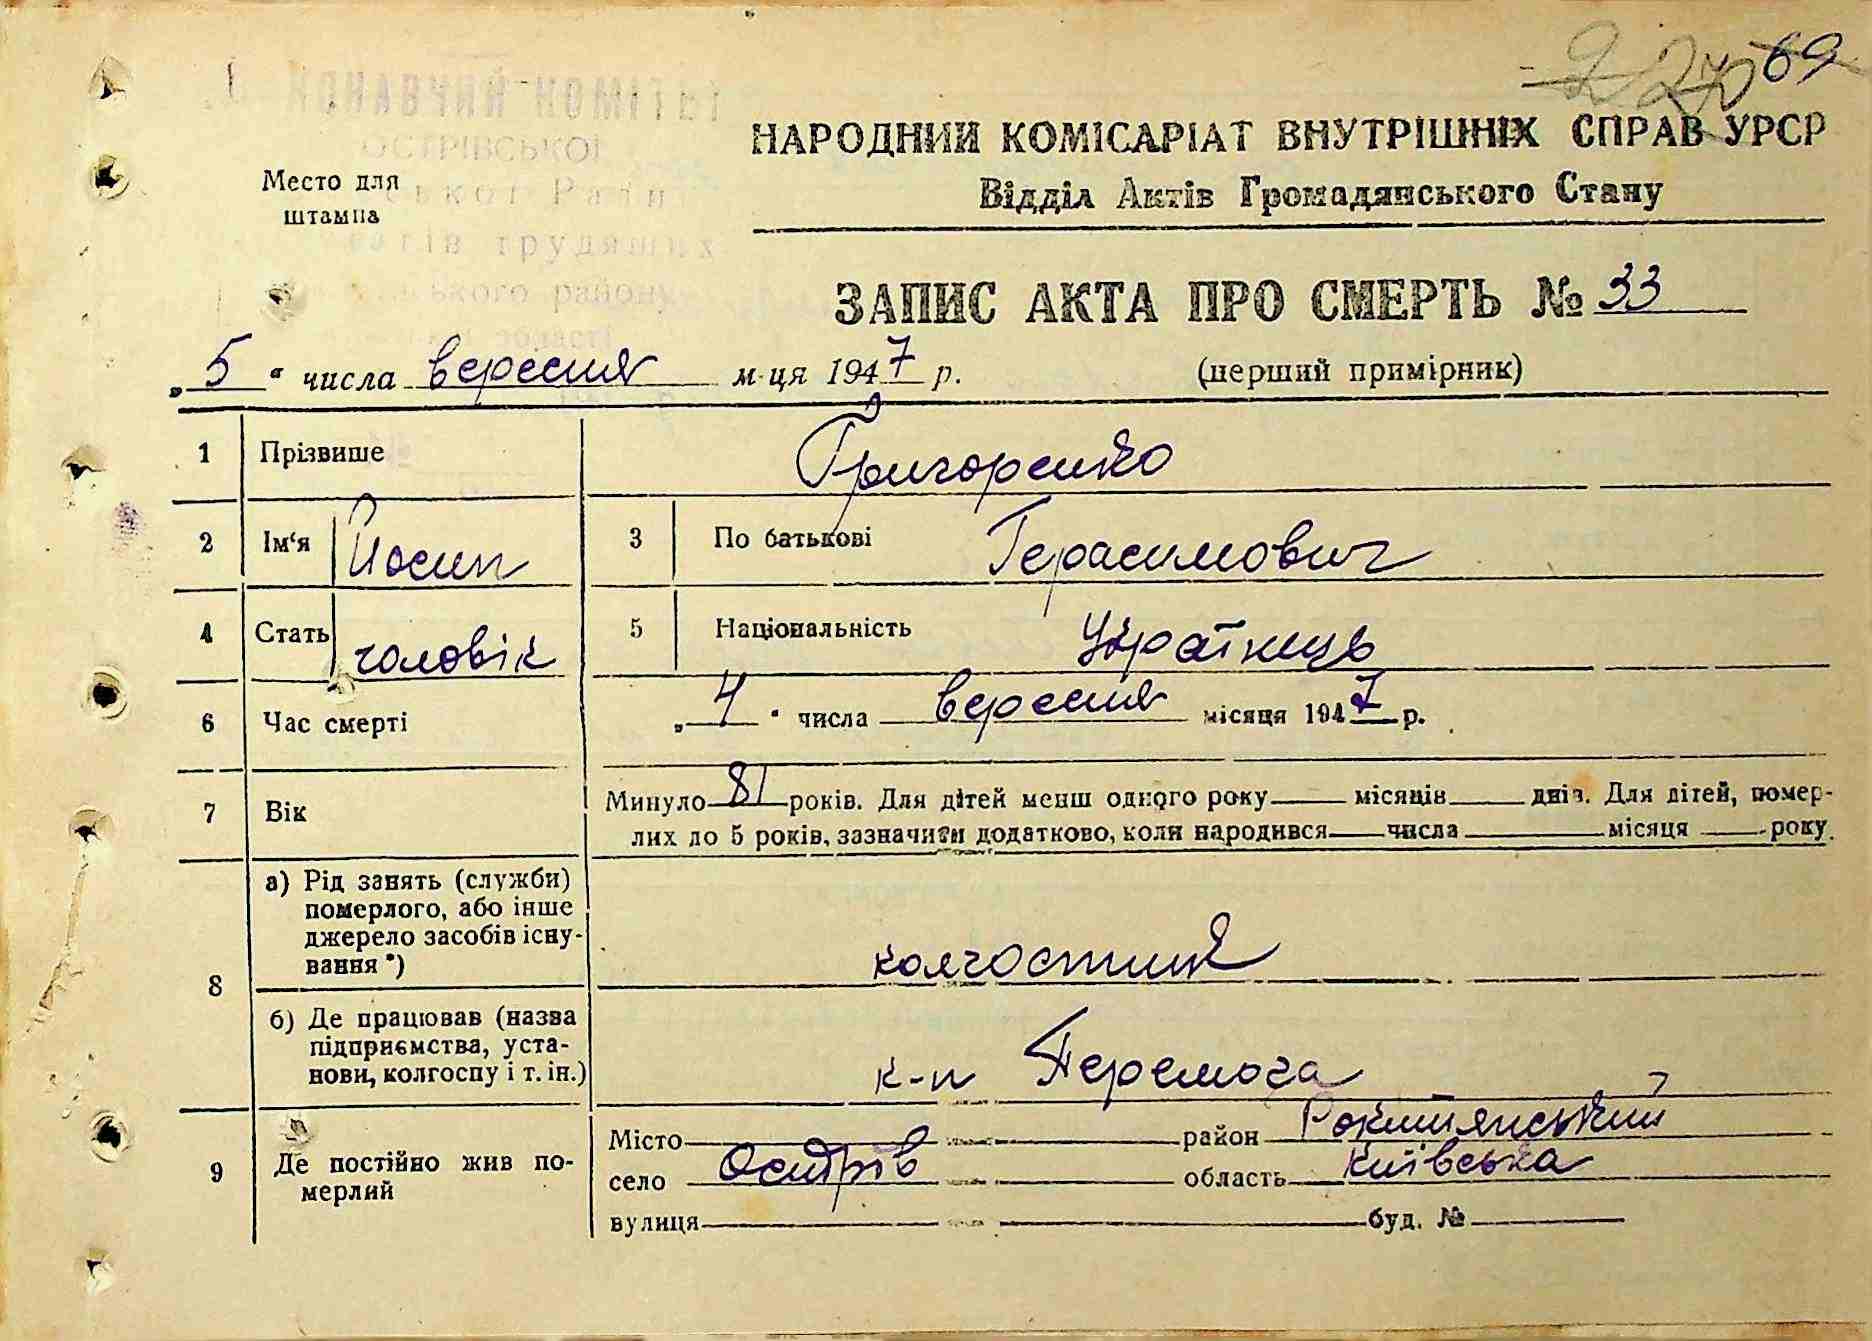 69
НАРОДНИЙ КОМІСАРІАТ ВНУТРІШНІХ СПРАВ УРСР
Відділ Актів Громадянського Стану
Место для
штампа
ЗАПИС АКТА ПРО СМЕРТЬ № 33
„5“ числа вересня м-ця 1947 р. (перший примірник)
1 Прізвише Григоренко
2 Ім‘я Йосип 3 По батькові Герасимович
4 Стать чоловік 5 Національність Українець
6 Час смерті „4“ числа вересня місяця 1947 р.
7 Вік Минуло 81 років. Для дітей менш одного року місяців днів. Для дітей, помер-
лих до 5 років, зазначити додатково, коли народився числа місяця року.
8 а) Рід занять (служби)
померлого, або інше
джерело засобів існу-
вання *)
колгоспник
б) Де працював (назва
підприємства, уста-
нови, колгоспу і т. ін.)
к-п Перемога
9 Де постійно жив по-
мерлий
Місто район Рокитянський
село Острів область Київська
вулиця буд. №